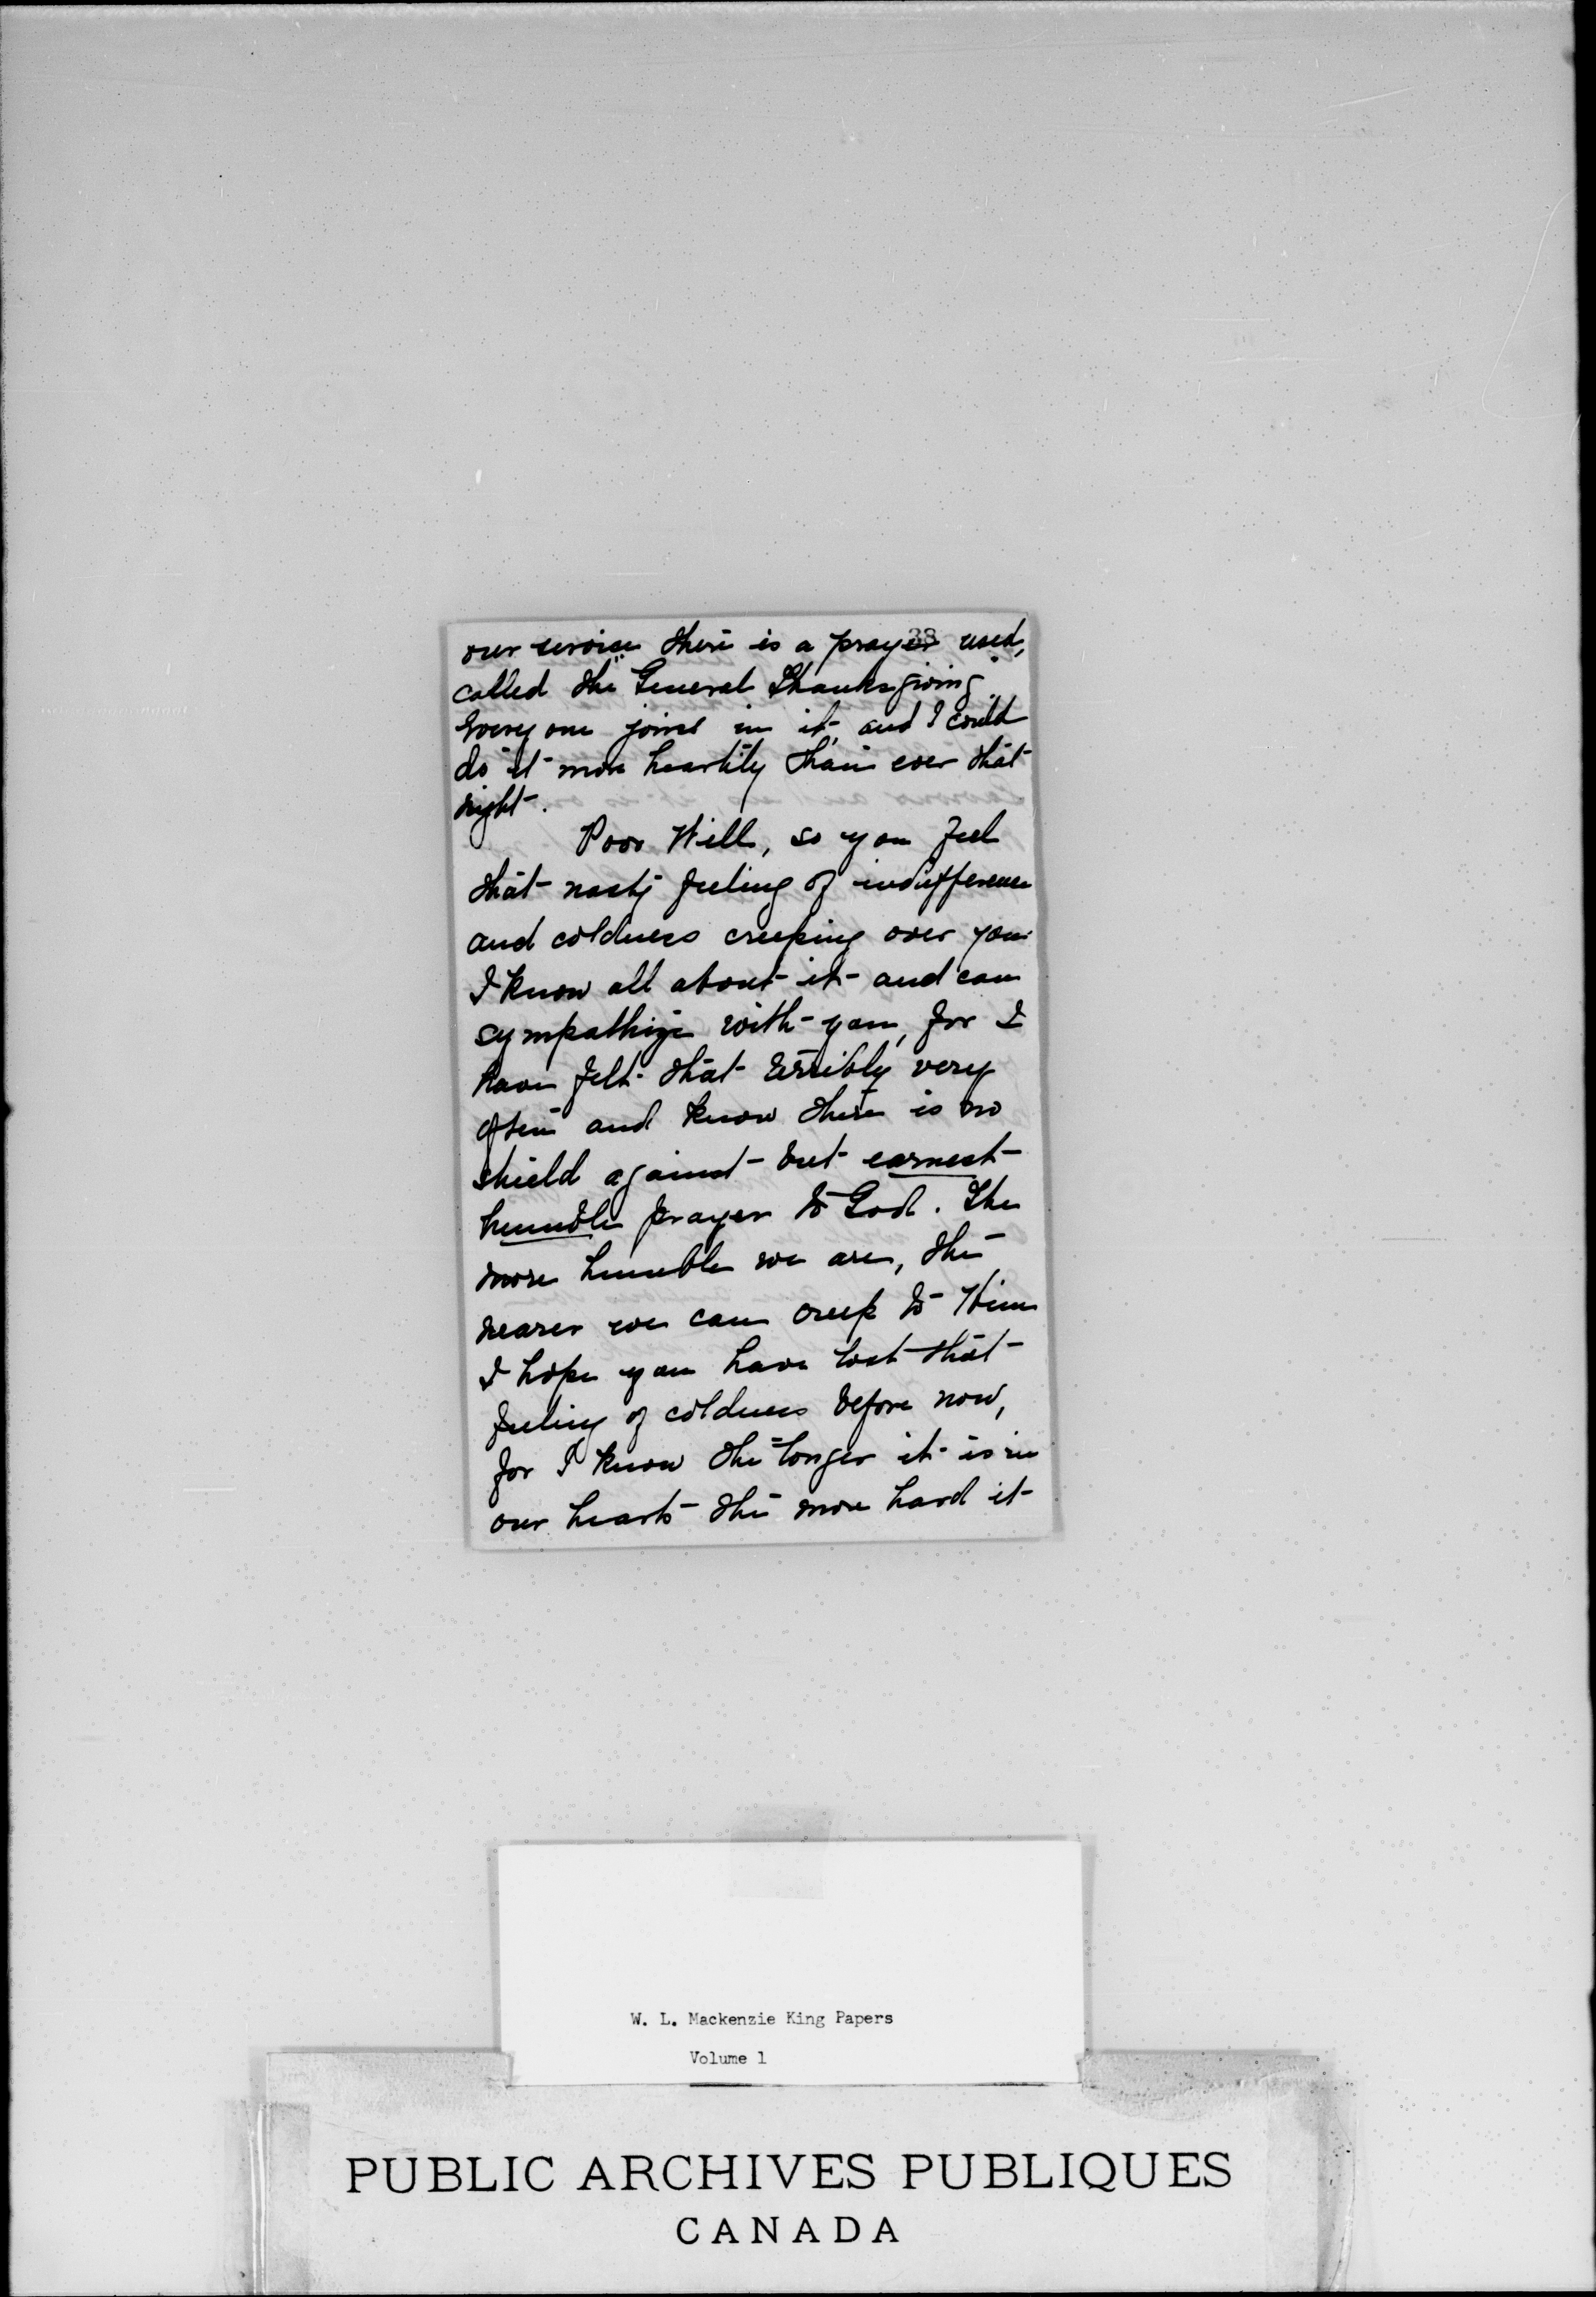 38
our service there is a prayer used,
called the "General Thanksgiving".
Every one joins in it, and I could
do it more heartily than ever that
night.
Poor Will, so you feel
that nasty feeling of indifference
and coldness creeping over you.
I know all about it and can
sympathize with you, for I
have felt that terribly very
often and know there is no
shield against but earnest
humble prayer to God. The
more humble we are, the
nearer we can creep to Him
I hope you have lost that
feeling of coldness before now,
for I know the longer it is in
our hearts the more hard it
W. L. Mackenzie King Papers
Volume 1
PUBLIC ARCHIVES PUBLIQUES
CANADA